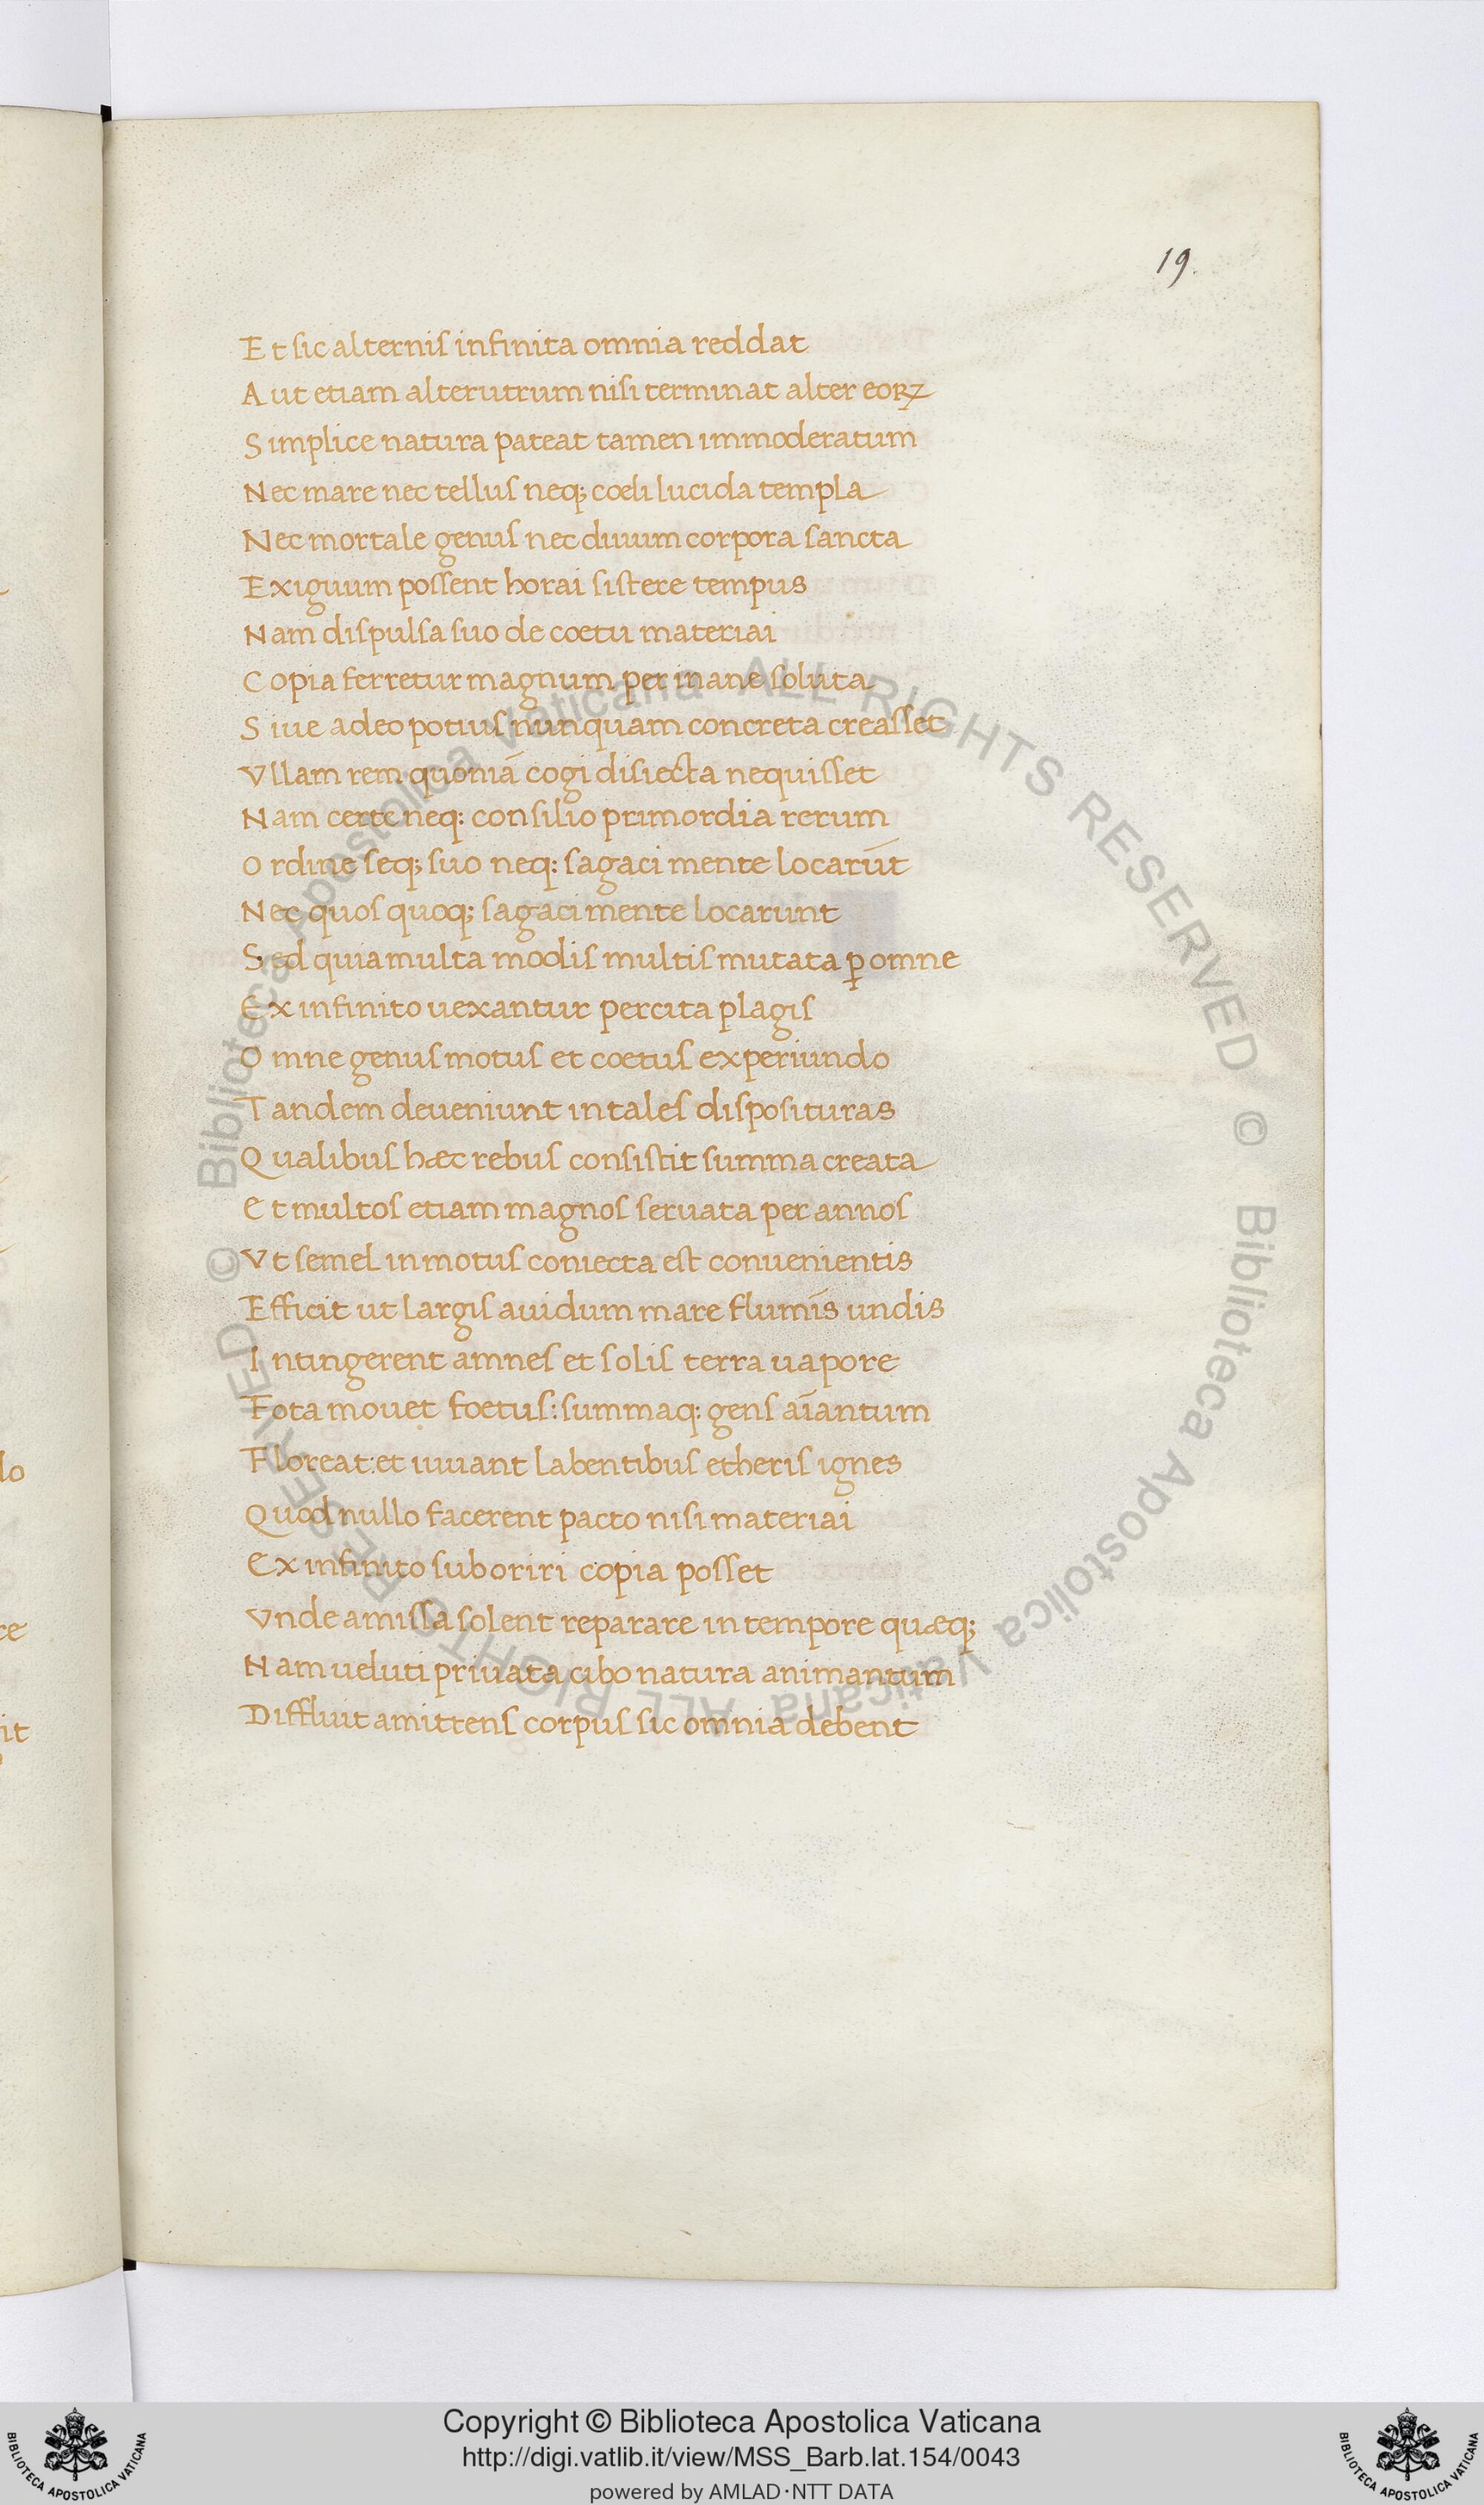 19.
Et sic alternis infinita omnia reddat
Aut etiam alterutrum nisi terminat alter eoꝝ
Simplice natura pateat tamen immoderatum
Nec mare nec tellus neq; coeli lucida templa
Nec mortale genus nec diuum corpora sancta
Exiguum possent horai sistere tempus
Nam dispulsa suo de coetu materiai
Copia ferretur magnum per inane soluta
Siue adeo potius nunquam concreta creasset
Vllam rem quoniā cogi disiecta nequisset
Nam certe neq: consilio primordia rerum
Ordine seq; suo neq: sagaci mente locarūt
Nec quos quoq; sagaci mente locarunt
Sed quia multa modis multis mutata ꝑ omne
Ex infinito uexantur percita plagis
Omne genus motus et coetus experiundo
Tandem deueniunt in tales disposituras
Qualibus hæc rebus consistit summa creata
Et multos etiam magnos seruata per annos
Vt semel in motus coniecta est conuenientis
Efficit ut largis auidum mare flumīs undis
Intingerent amnes et solis terra uapore
Fota mouet foetus: summaq: gens aīantum
Floreat: et uiuant labentibus etheris ignes
Quod nullo facerent pacto nisi materiai
Ex infinito suboriri copia posset
Vnde amissa solent reparare in tempore quæq;
Nam ueluti priuata cibo natura animantum
Diffluit amittens corpus sic omnia debent
lo
re
it
© Biblioteca Apostolica Vaticana ALL RIGHTS RESERVED © Biblioteca Apostolica Vaticana ALL RIGHTS RESERVED
Copyright © Biblioteca Apostolica Vaticana
http://digi.vatlib.it/view/MSS_Barb.lat.154/0043
powered by AMLAD·NTT DATA
BIBLIOTECA APOSTOLICA VATICANA
BIBLIOTECA APOSTOLICA VATICANA